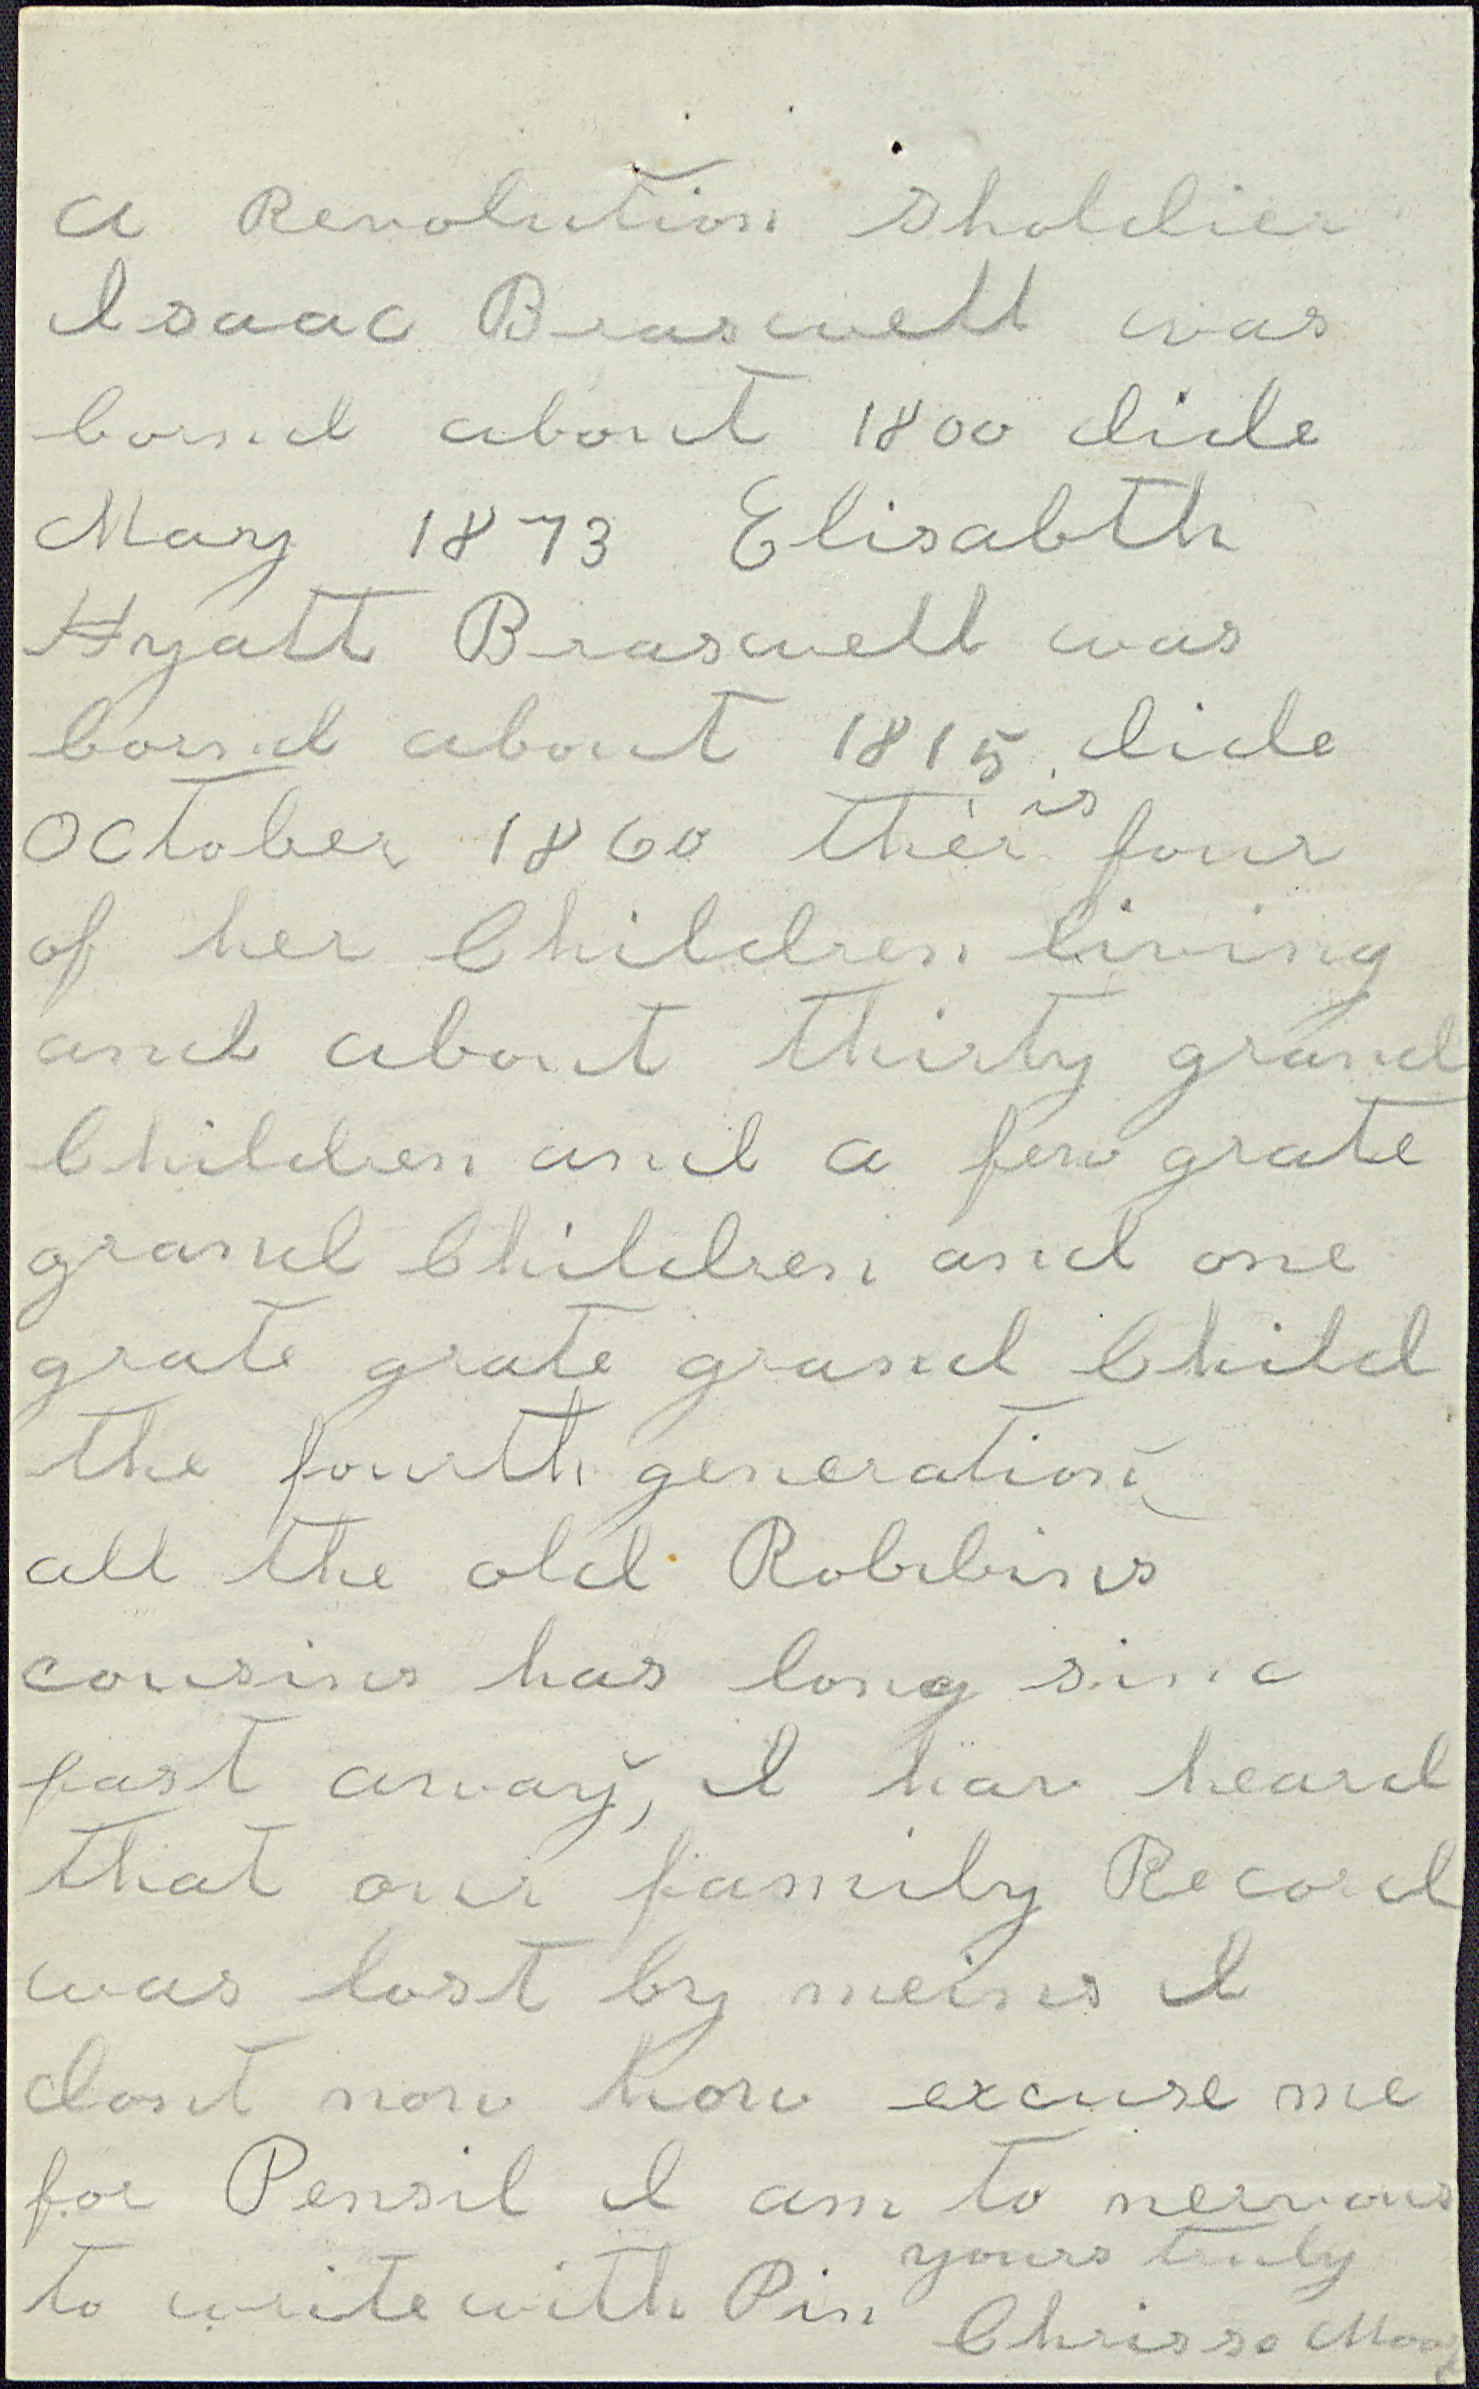 a Revolution Sholdier
Isaac Braswell was
bornd about 1800 dide
May 1873 Elisabth
Hyatt Braswell was
bornd about 1815 dide
October 1860 ther is four
of her Children living
and about thirty grand
Children and a few grate
grand Children and one
grate grate grand Child
the fourth generation
all the old Robbins
cousins has long sinc
past away, I hav heard
that our family Record
was lost by meins I
dont now how excuse me
for Pensil I am to nervous
to write with Pin yours truly
Chrisse